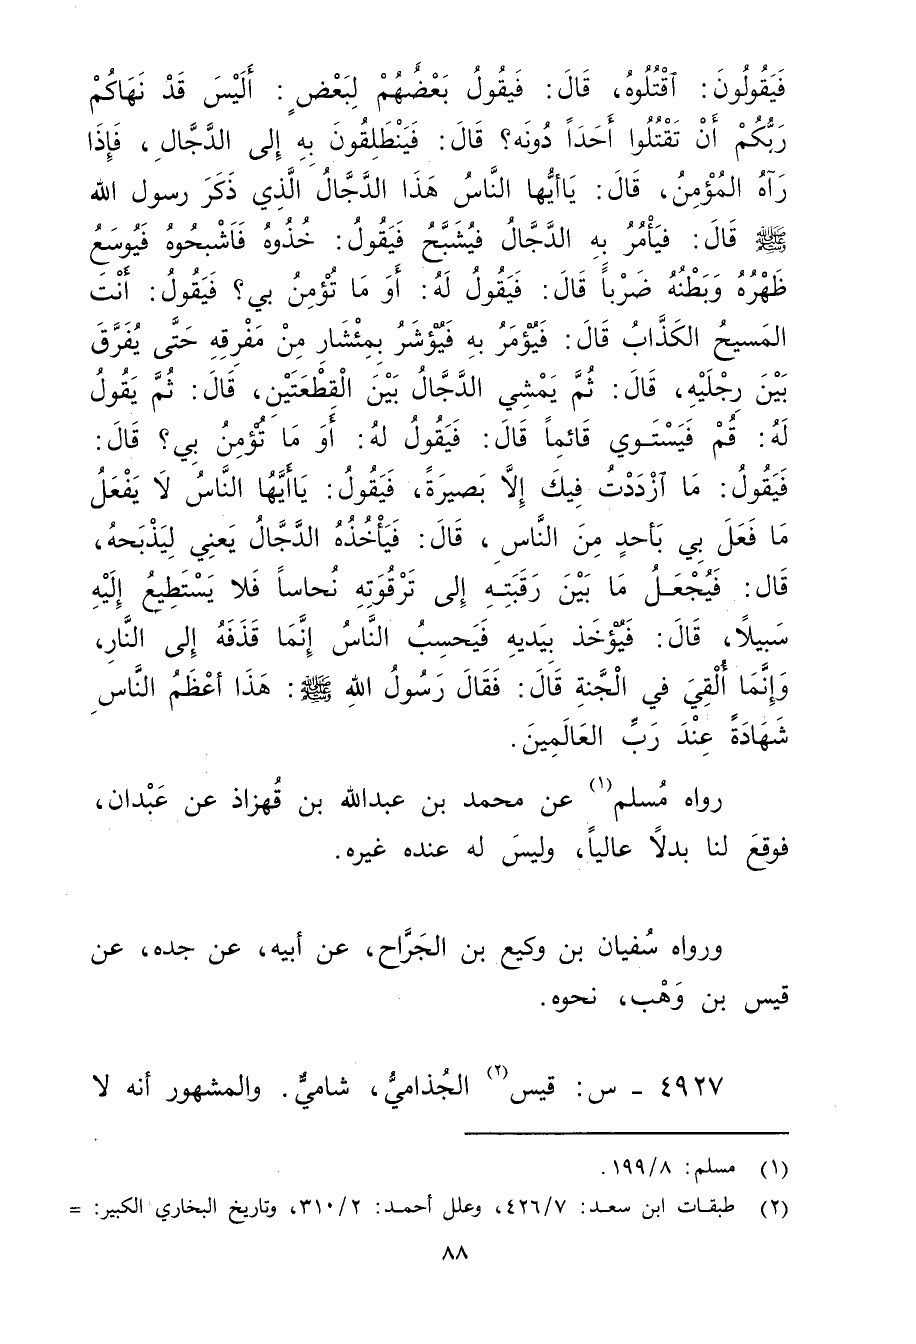 فَيَقُولُونَ: ٱقْتُلُوهُ، قَالَ: فَيَقُولُ بَعْضُهُمْ لِبَعْضٍ: أَلَيْسَ قَدْ نَهَاكُمْ
رَبُّكُمْ أَنْ تَقْتُلُوا أَحَدَاً دُونَه؟ قَالَ: فَيَنْطَلِقُونَ بِهِ إِلى الدَّجَّالِ، فَإِذَا
رَآهُ المُؤْمِنُ، قَالَ: يَاأَيُّها النَّاسُ هَذَا الدَّجَّالُ الَّذِي ذَكَرَ رسول الله
ﷺ قَالَ: فَيَأْمُرُ بِهِ الدَّجَّالُ فَيُشَبَّحُ فَيَقُولُ: خُذُوهُ فَاَشْبحُوهُ فَيُوسَعُ
ظَهْرُهُ وَبَطْنُهُ ضَرْباً قَالَ: فَيَقُولُ لَهُ: أَوَ مَا تُؤْمِنُ بي؟ فَيَقُولُ: أَنْتَ
المَسيحُ الكَذَّابُ قَالَ: فَيُؤْمَرُ بِهِ فَيُؤْشَرُ بِمِئْشَارِ مِنْ مَفْرِقِهِ حَتَّى يُفَرَّقَ
بَيْنَ رِجْلَيْهِ، قَالَ: ثُمَّ يَمْشِي الدَّجَّالُ بَيْنَ الْقِطْعَتَيْنِ، قَالَ: ثُمَّ يَقُولُ
لَهُ: قُمْ فَيَسْتَوِي قَائِماً قَالَ: فَيَقُولُ لهُ: أَوَ مَا تُؤْمِنُ بِي؟ قَالَ:
فَيَقُولُ: مَا ٱزْدَدْتُ فِيكَ إِلَّا بَصِيرَةً، فَيَقُولُ: يَاأَيُّهَا النَّاسُ لَا يَفْعَلُ
مَا فَعَلَ بِي بَأحدٍ مِنَ النَّاسِ، قَالَ: فَيَأْخُذُهُ الدَّجَّالُ يَعنِي لِيَذْبَحهُ،
قَال: فَيُجْعَلُ مَا بَيْنَ رَقَبَتِهِ إِلى تَرْقُوَتِهِ نُحاساً فَلا يَسْتَطِيعُ إِلَيْهِ
سَبيلاً، قَالَ: فَيُؤْخَذ بِيَديهِ فَيَحسِبُ النَّاسُ إِنَّمَا قَذَفَهُ إِلى النَّارِ،
وَإِنَّمَا أُلْقِيَ في الْجَّنةِ قَالَ: فَقَالَ رَسُولُ اللهِ ﷺ: هَذَا أعْظَمُ النَّاسِ
شَهَادَةً عِنْدَ رَبِّ العَالَمِينَ.
رواه مُسلم(١) عن محمد بن عبدالله بن قُهزاذ عن عَبْدان،
فوقعَ لنا بدلاً عالياً، وليسَ له عنده غيره.
ورواه سُفيان بن وكيع بن الجَرَّاح، عن أبيه، عن جده، عن
قيس بن وَهْب، نحوه.
٤٩٢٧ - س: قيس(٢) الجُذاميُّ، شاميٌّ. والمشهور أنه لا
(١) مسلم: ١٩٩/٨.
(٢) طبقات ابن سعد: ٤٢٦/٧، وعلل أحمد: ٣١٠/٢، وتاريخ البخاري الكبير: =
٨٨